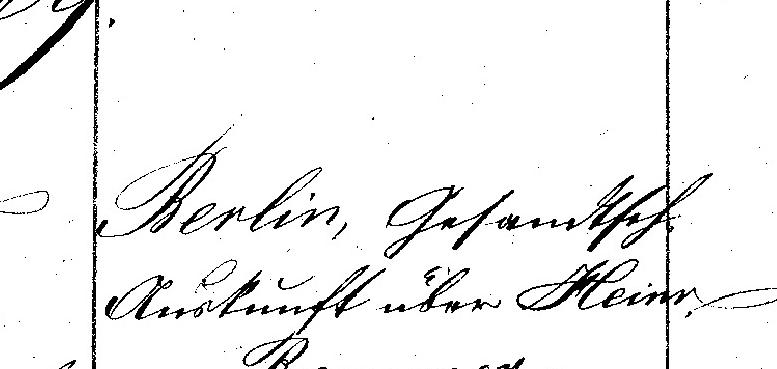 Berlin, Gesandtsch.
Auskunft über Heinr.